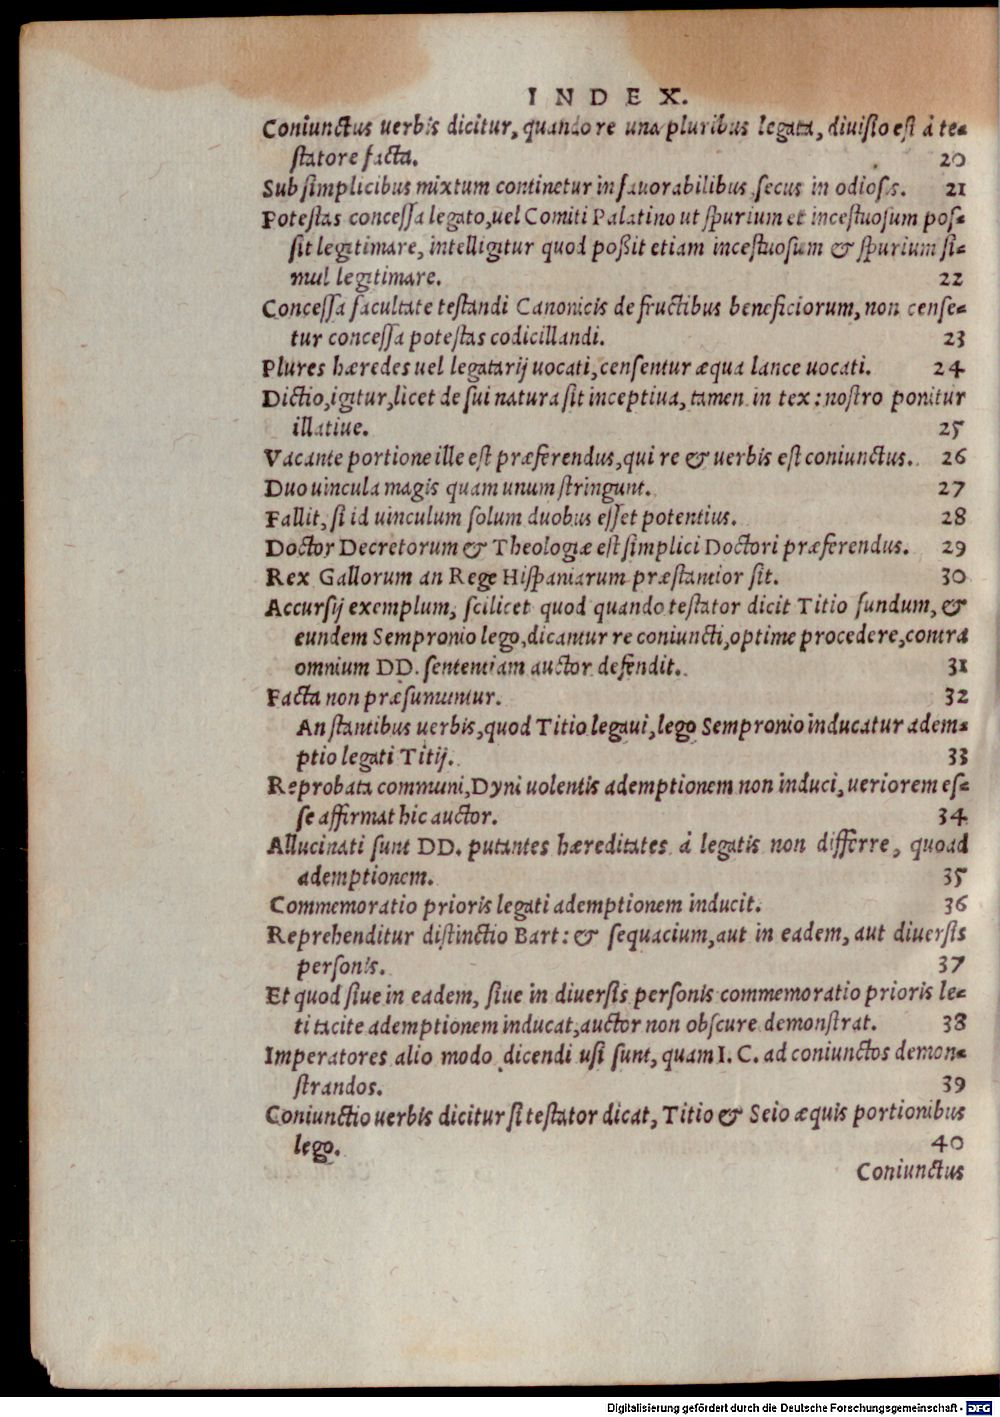 INDEX.
Coniunctus uerbis dicitur, quando re una pluribus legata, diuisio est à te-
statore facta. 20
Sub simplicibus mixtum continetur in fauorabilibus, secus in odiosis. 21
Potestas concessa legato, uel Comiti Palatino ut spurium et incestuosum pos-
sit legitimare, intelligitur quod poßit etiam incestuosum & spurium si-
mul legitimare. 22
Concessa facultate testandi Canonicis de fructibus beneficiorum, non cense-
tur concessa potestas codicillandi. 23
Plures hæredes uel legatarij uocati, censentur æqua lance uocati. 24
Dictio, igitur, licet de sui natura sit inceptiua, tamen in tex: nostro ponitur
illatiue. 25
Vacante portione ille est præferendus, qui re & uerbis est coniunctus. 26
Duo uincula magis quam unum stringunt. 27
Fallit, si id uinculum solum duobus esset potentius. 28
Doctor Decretorum & Theologiæ est simplici Doctori præferendus. 29
Rex Gallorum an Rege Hispaniarum præstantior sit. 30
Accursij exemplum, scilicet quod quando testator dicit Titio fundum, &
eundem Sempronio lego, dicantur re coniuncti, optime procedere, contra
omnium DD. sententiam auctor defendit. 31
Facta non præsumuntur. 32
An stantibus uerbis, quod Titio legaui, lego Sempronio inducatur adem-
ptio legati Titij. 33
Reprobata communi, Dyni uolentis ademptionem non induci, ueriorem es-
se affirmat hic auctor. 34
Allucinati sunt DD. putantes hæreditates à legatis non differre, quoad
ademptionem. 35
Commemoratio prioris legati ademptionem inducit. 36
Reprehenditur distinctio Bart: & sequacium, aut in eadem, aut diuersis
personis. 37
Et quod siue in eadem, siue in diuersis personis commemoratio prioris le-
ti tacite ademptionem inducat, auctor non obscure demonstrat. 38
Imperatores alio modo dicendi usi sunt, quam I. C. ad coniunctos demon-
strandos. 39
Coniunctio uerbis dicitur si testator dicat, Titio & Seio æquis portionibus
lego. 40
Coniunctus
Digitalisierung gefördert durch die Deutsche Forschungsgemeinschaft - DFG